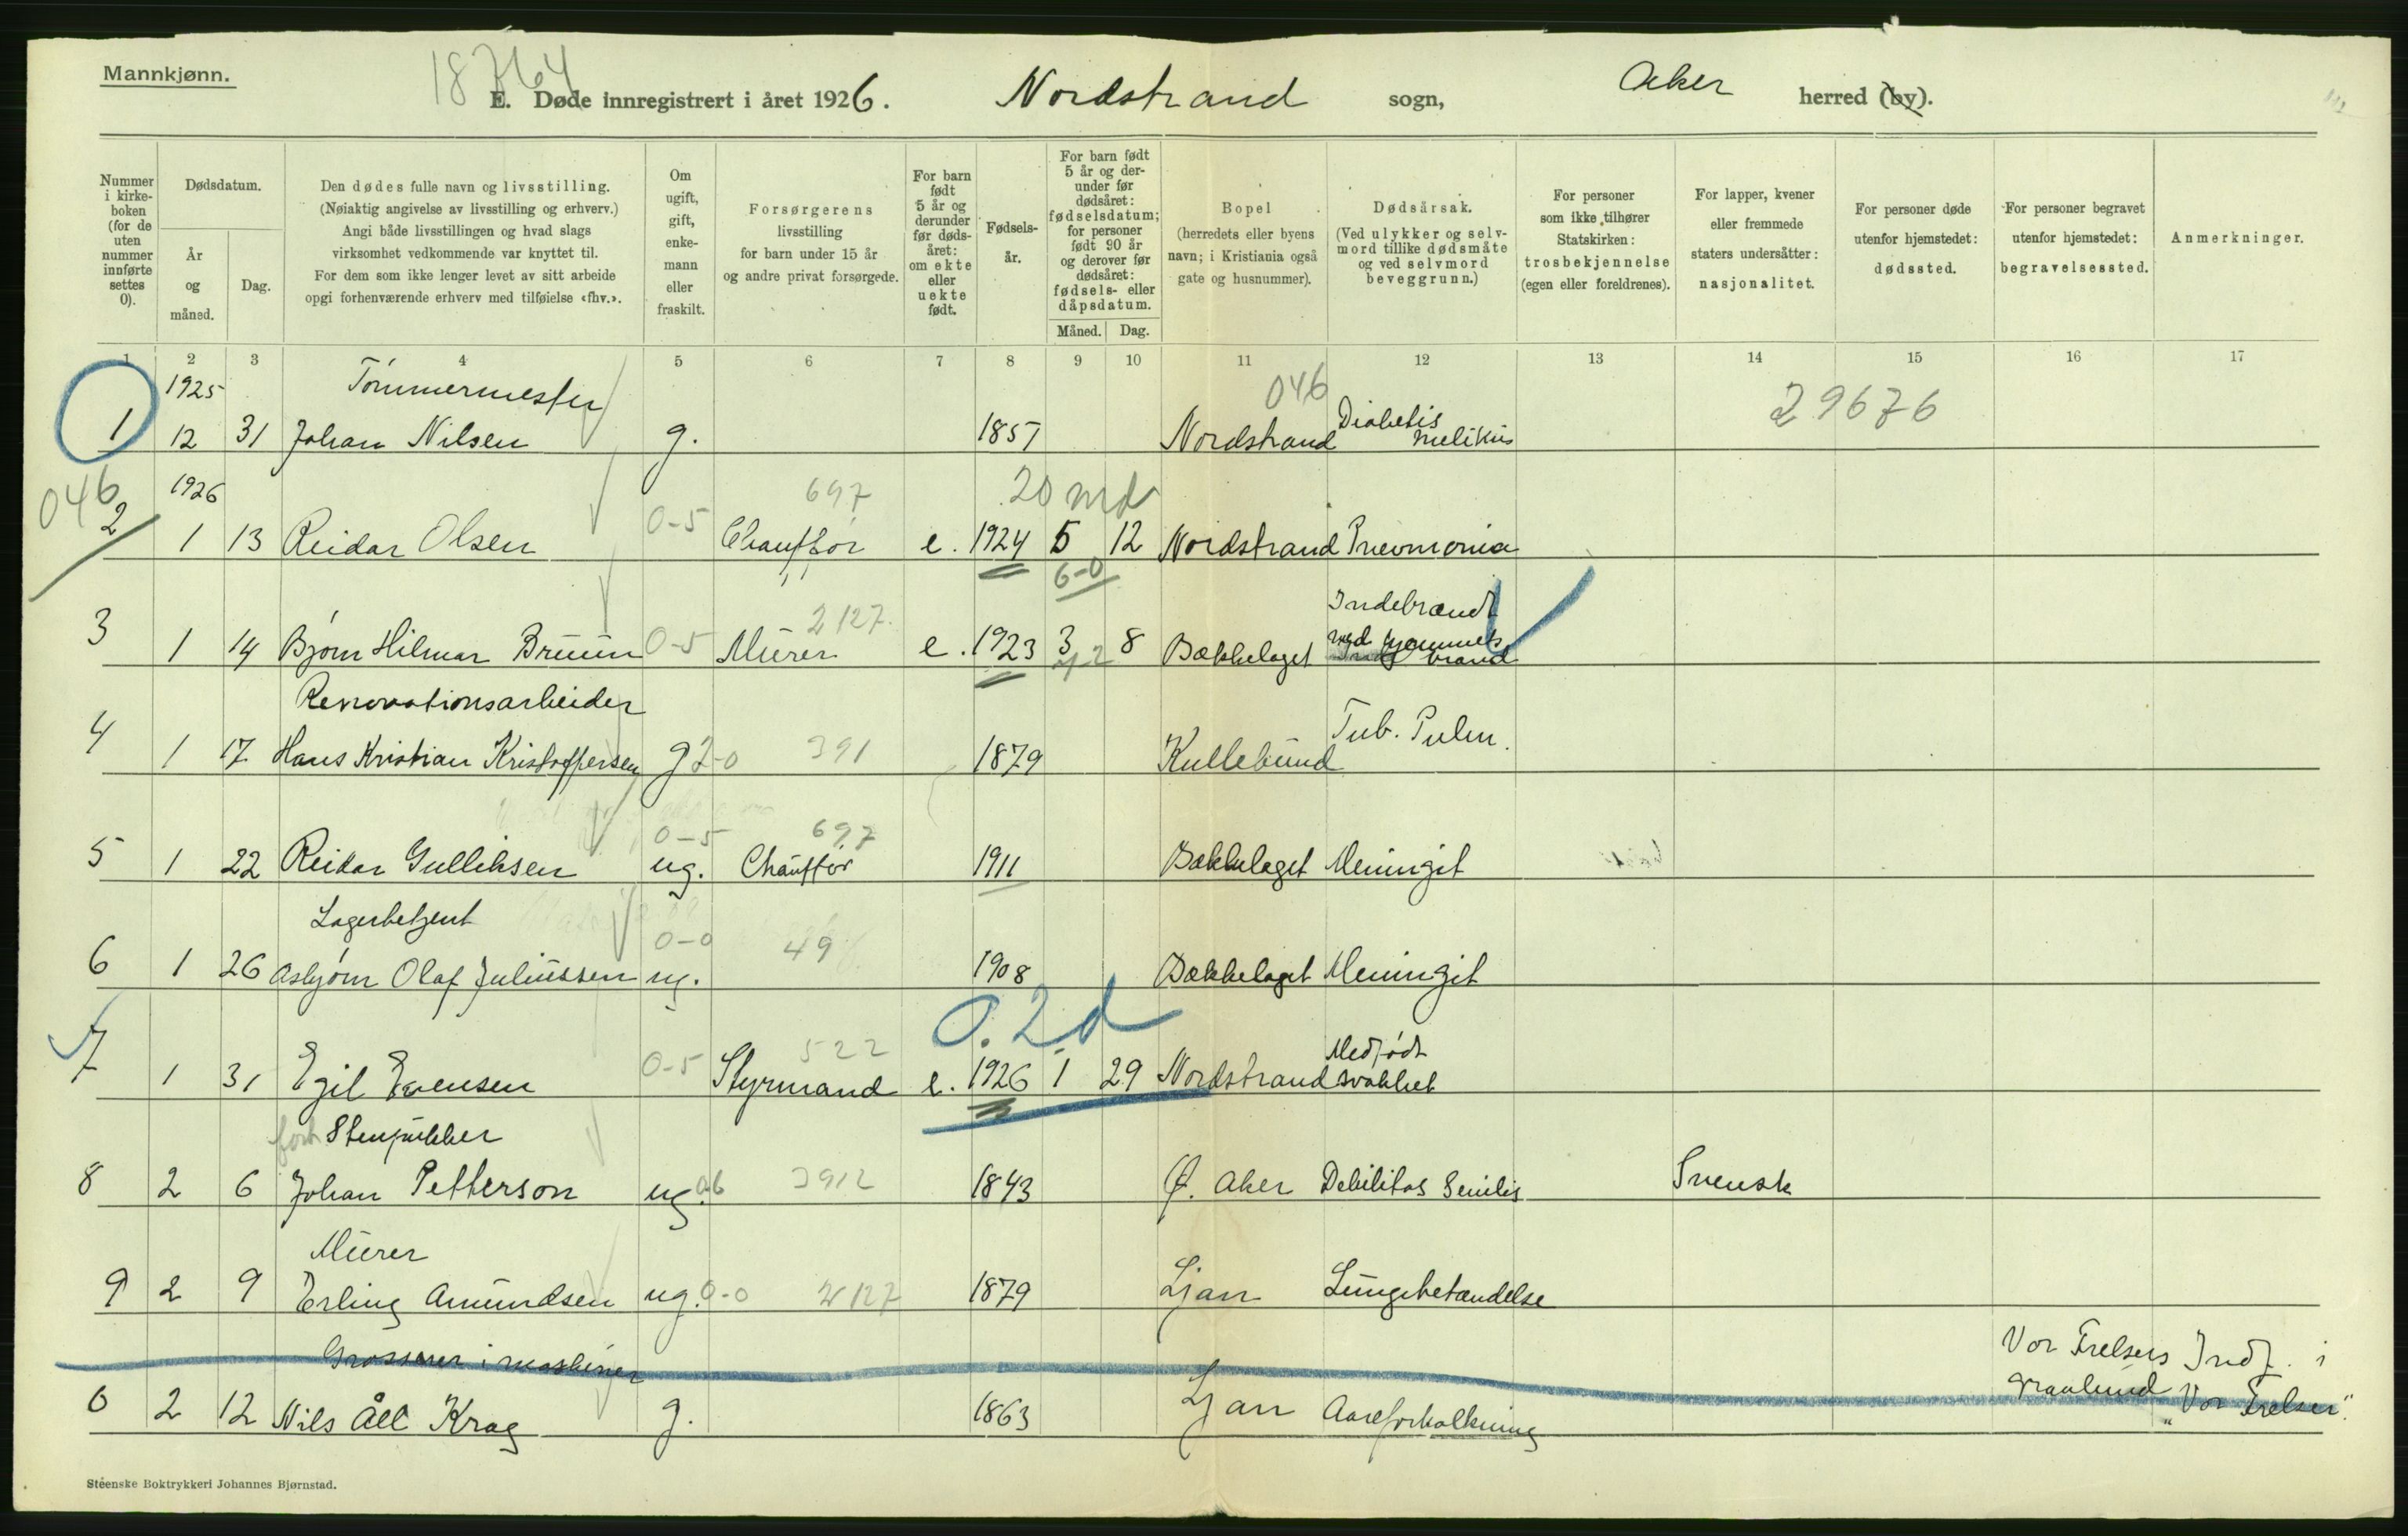 Mannkjønn.
18764
E. Døde innregistrert i året 1926. Nordstrand sogn, Aker herred (by).
Nummer i kirkeboken (for de uten nummer innførte settes 0).
Dødsdatum.
År og måned.
Dag.
Den dødes fulle navn og livsstilling.
(Nøiaktig angivelse av livsstilling og erhverv.)
Angi både livsstillingen og hvad slags
virksomhet vedkommende var knyttet til.
For dem som ikke lenger levet av sitt arbeide
opgi forhenværende erhverv med tilføielse «fhv.».
Om ugift, gift, enkemann eller fraskilt.
Forsørgerens
livsstilling
for barn under 15 år
og andre privat forsørgede.
For barn født 5 år og derunder før dødsåret: om ekte eller uekte født.
Fødselsår.
For barn født 5 år og derunder før dødsåret: fødselsdatum; for personer født 90 år og derover før dødsåret: fødsels- eller dåpsdatum.
Måned. Dag.
Bopel
(herredets eller byens
navn; i Kristiania også
gate og husnummer).
Dødsårsak.
(Ved ulykker og selvmord tillike dødsmåte
og ved selvmord
beveggrunn.)
For personer
som ikke tilhører
Statskirken:
trosbekjennelse
(egen eller foreldrenes).
For lapper, kvener
eller fremmede
staters undersåtter:
nasjonalitet.
For personer døde
utenfor hjemstedet:
dødssted.
For personer begravet
utenfor hjemstedet:
begravelsessted.
Anmerkninger.
1 2 3 4 5 6 7 8 9 10 11 12 13 14 15 16 17
1925 Tömmermester 046 29676
1 12 31 Johan Nilsen g. 1857 Nordstrand Diabetis melitus
046 1926 697 20 md
2 1 13 Reidar Olsen 0-5 Chaufför e. 1924 5 12 Nordstrand Pnevmonia
6-0
2127 Indebrændt
3 1 14 Bjørn Hilmar Bruun 0-5 Murer e. 1923 3 8 Bækkelaget ved hjemmets brand
Renovationsarbeider
4 1 17 Hans Kristian Kristoffersen g 2-0 391 1879 Kullebund Tub. Pulm.
0-5 697
5 1 22 Reidar Gulliksen ug. Chauffør 1911 Bækkelaget Meningit
Lagerbetjent 0-0 49
6 1 26 Asbjørn Olaf Juliussen ug. 1908 Bækkelaget Meningit
0. 2d
522 Medfødt
7 1 31 Egil Evensen 0-5 Styrmand e. 1926 1 29 Nordstrand svakhet
forh Stenpukker
8 2 6 Johan Petterson ug. 06 3912 1843 Ø. Aker Debilitas Senilis Svensk
Murer
9 2 9 Erling Amundsen ug. 0-0 2127 1879 Ljan Lungebetændelse
Grosserer i maskiner Vor Frelsers Indf. i
0 2 12 Nils Åll Krag g. 1863 Ljan Aareforkalkning Gravlund "Vor Frelser".
Steenske Boktrykkeri Johannes Bjørnstad.